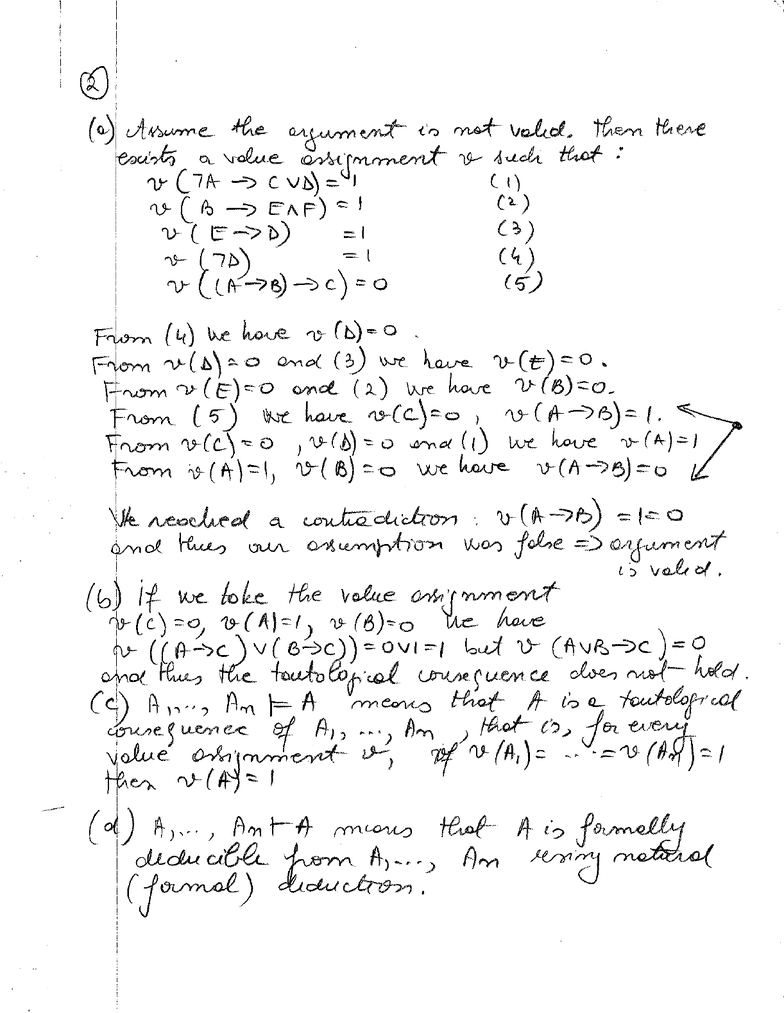 ②
(a) Assume the argument is not valid. Then there
exists a value assignment v such that :
v (¬A → C∨D) = 1 (1)
v ( B → E∧F) = 1 (2)
v ( E → D) = 1 (3)
v (¬D) = 1 (4)
v ((A→B)→C) = 0 (5)
From (4) we have v (D)=0.
From v(D)=0 and (3) we have v(E)=0.
From v(E)=0 and (2) we have v(B)=0.
From (5) we have v(C)=0, v(A→B)=1.
From v(C)=0, v(D)=0 and (1) we have v(A)=1
From v(A)=1, v(B)=0 we have v(A→B)=0
We reached a contradiction : v(A→B) =1=0
and thus our assumption was false => argument
is valid.
(b) If we take the value assignment
v(C)=0, v(A)=1, v(B)=0 we have
v ((A→C)∨(B→C))=0∨1=1 but v (A∨B→C)=0
and thus the tautological consequence does not hold.
(c) A1,..., An ⊨ A means that A is a tautological
consequence of A1, ..., An, that is, for every
value assignment v, if v(A1)= ... = v(An)=1
then v(A)=1
(d) A,..., An ⊢ A means that A is formally
deducible from A,..., An using natural
(formal) deduction.